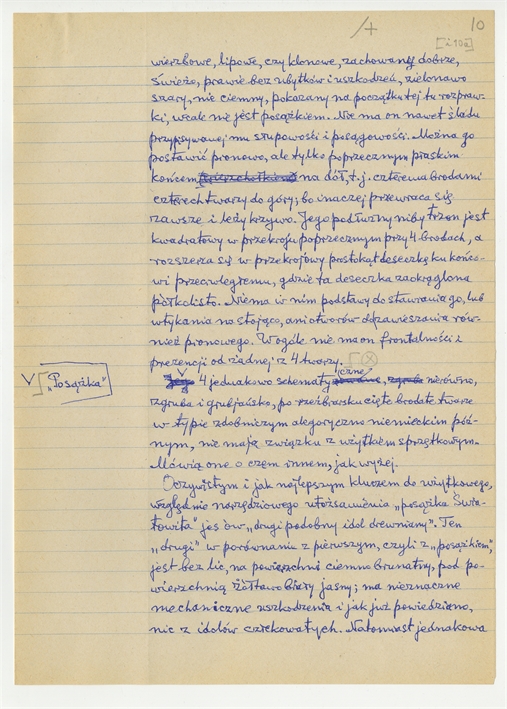 /+
10
[i 10a]
wierzbowe, lipowe, czy klonowe, zachowany dobrze,
świeżo, prawie bez ubytków i uszkodzeń, zielonawo
szary, nie ciemny, pokazany na początku tej tu rozpraw-
ki, wcale nie jest posążkiem. Nie ma on nawet śladu
przypisywanej mu słupowości i posągowości. Można go
postawić pionowo, ale tylko poprzecznym płaskim
końcem na dół, t.j. czterema brodami
czterech twarzy do góry; bo inaczej przewraca się
zawsze i leży krzywo. Jego podłużny niby trzon jest
kwadratowy w przekroju poprzecznym przy 4 brodach, a
rozszerza się w przekrojowy prostokąt deseczkę ku końco-
wi przeciwległemu, gdzie ta deseczka zaokrąglona
półkolisto. Niema w nim podstawy do stawiania go, lub
wtykania na stojąco, ani otworów do zawieszania rów-
nież pionowego. Wogóle nie ma on frontalności i
prezencji od żadnej z 4 twarzy.
V „Posążka"
4 jednakowo schematyczne, nierówno,
zgruba i grubjańsko, po rzeźbiarsku cięte brodate twarze
w typie zdobniczym alegoryczno niemieckim póź-
nym, nie mają związku z użytkiem sprzętkowym.
Mówią one o czem innem, jak wyżej.
Oczywistym i jak najlepszym kluczem do użytkowego,
względnie narzędziowego utożsamienia „posążka Świa-
towita" jes ów „drugi podobny idol drewniany". Ten
„drugi" w porównaniu z pierwszym, czyli z „posążkiem",
jest bez lic, na powierzchni ciemno brunatny, pod po-
wierzchnią żółtawo biały jasny; ma nieznaczne
mechaniczne uszkodzenia i jak już powiedziano,
nic z idolów człekowatych. Natomiast jednakowa